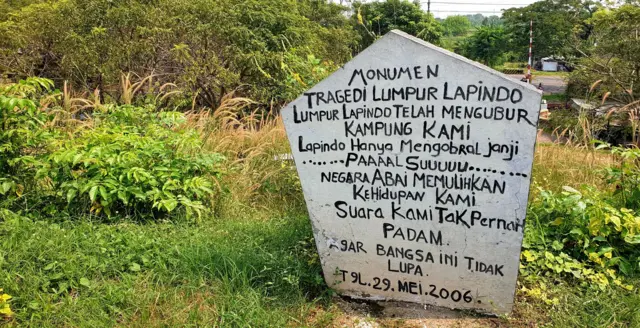 MONUMEN
TRAGEDI LUMPUR LAPINDO
LUMPUR LAPINDO TELAH MENGUBUR
KAMPUNG KAMI
LAPINDO HANYA MENGOBRAL JANJI
.......PAAAAL SUUUUU.......
NEGARA ABAI MEMULIHKAN
KEHIDUPAN KAMI
SUARA KAMI TAK PERNAH
PADAM.
AGAR BANGSA INI TIDAK
LUPA.
TGL.29.MEI.2006